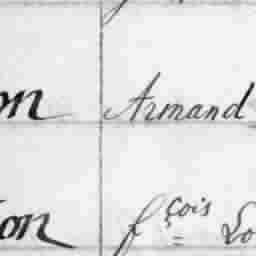 on Armand
ion fçois Lo